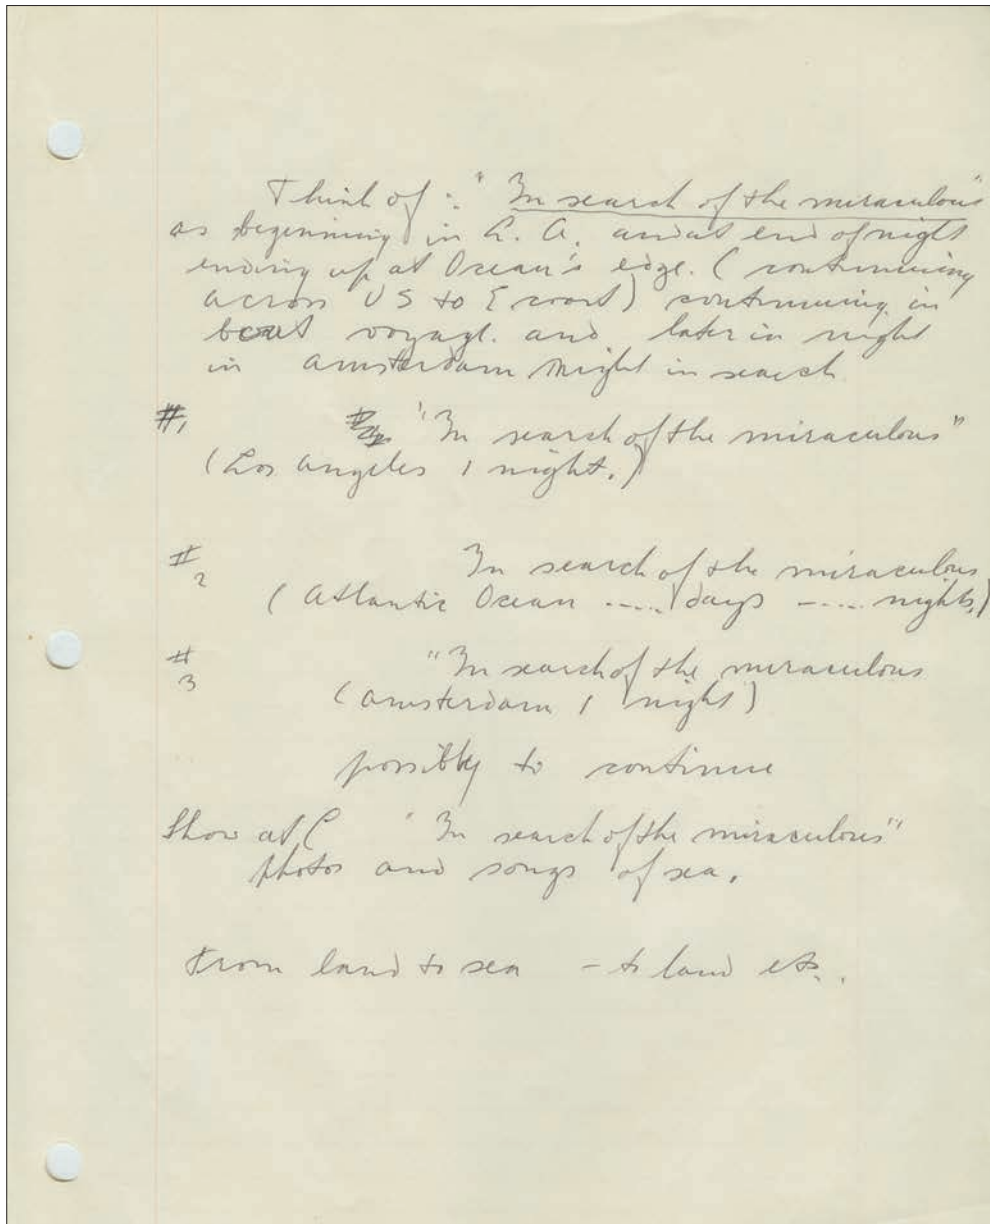 Think of : "In search of the miraculous"
as beginning in L. A. and at end of night
ending up at Ocean's edge. ( continuing
across US to E coast) continuing in
boat voyage. and later in night
in amsterdam night in search
#1 "In search of the miraculous"
(Los Angeles 1 night.)
#2 In search of the miraculous
( Atlantic Ocean ..... days ..... nights.)
#3 "In search of the miraculous
(amsterdam 1 night)
possibly to continue
Show at C "In search of the miraculous"
photos and songs of sea.
From land to sea - to land etc..